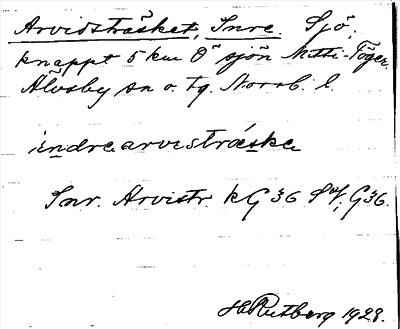 Arvidsträsket, Inre. Sjö,
knappt 5 km Ö sjön Mitti-Töger.
Älvsby sn o. tg. Norrb. l.
indre arvisträske
Inr. Arvistr. kG36 Söf, G36.
H Rutberg 1928.